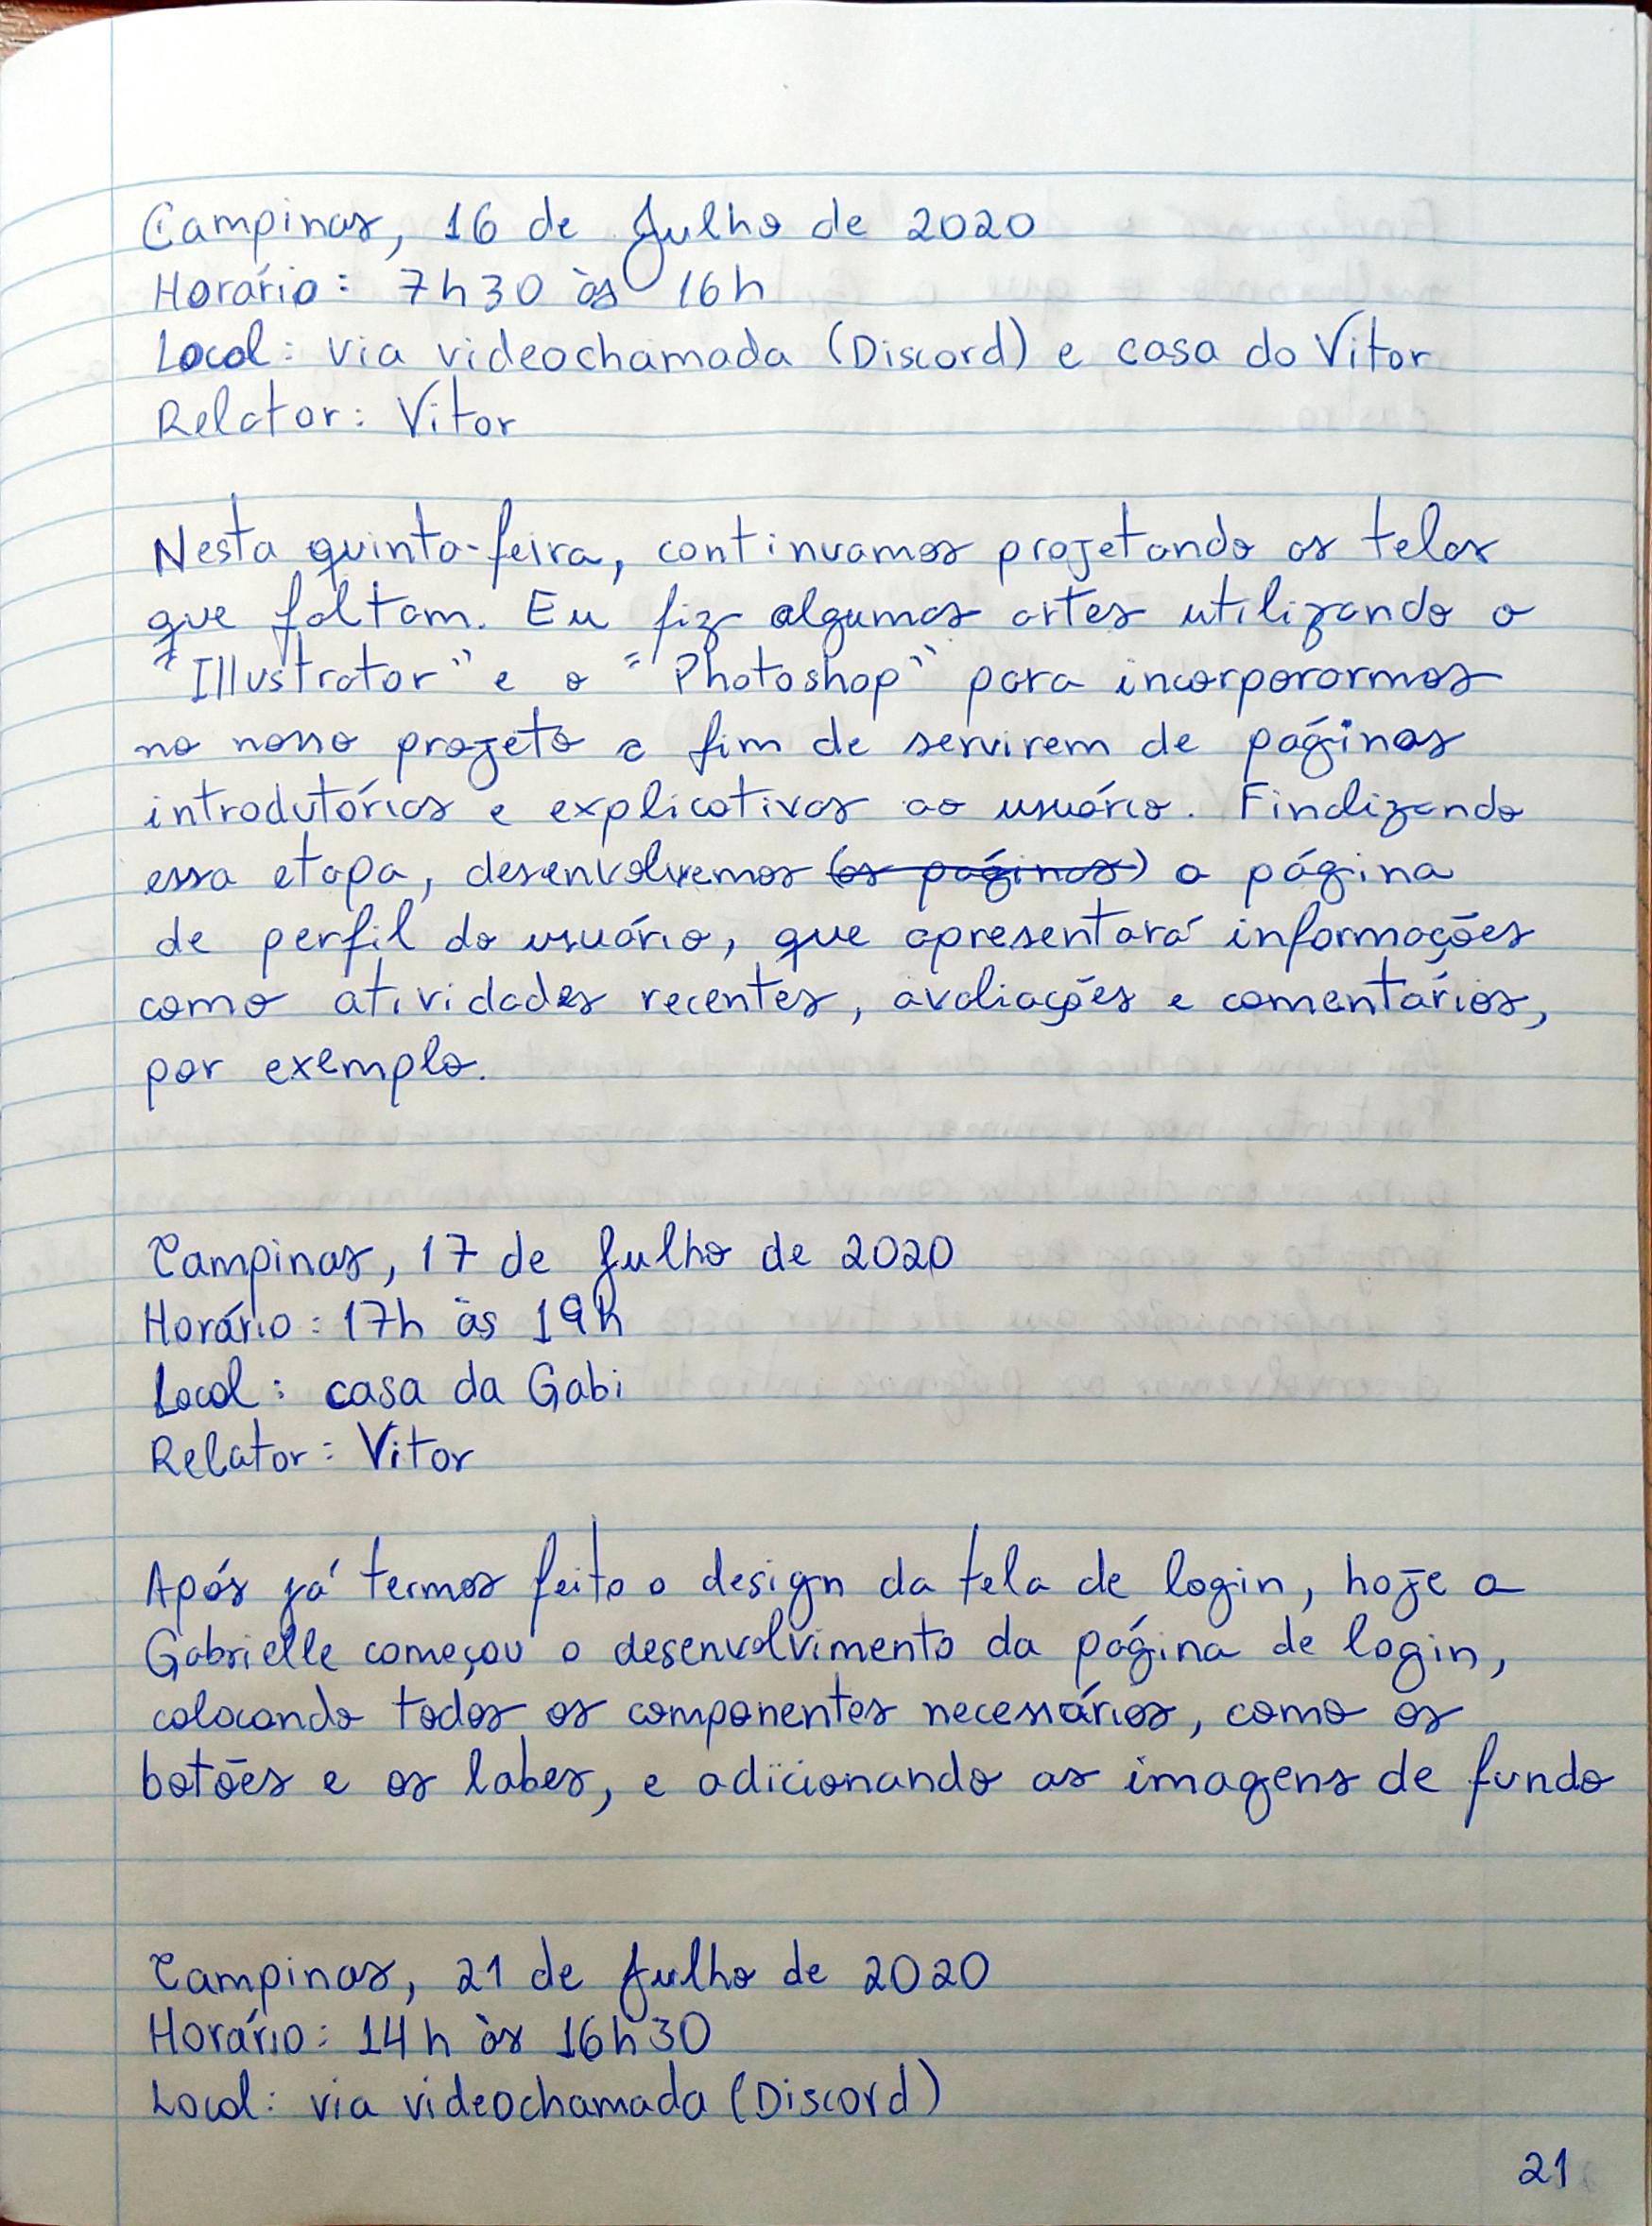 Campinas, 16 de Julho de 2020
Horário: 7h30 às 16h
Local: via videochamada (Discord) e casa do Vitor
Relator: Vitor
Nesta quinta-feira, continuamos projetando as telas
que faltam. Eu fiz algumas artes utilizando o
"Illustrator" e o "Photoshop" para incorporarmos
no nosso projeto a fim de servirem de páginas
introdutórias e explicativas ao usuário. Finalizando
essa etapa, desenvolvemos (as páginas) a página
de perfil do usuário, que apresentará informações
como atividades recentes, avaliações e comentários,
por exemplo.
Campinas, 17 de Julho de 2020
Horário: 17h às 19h
Local: casa da Gabi
Relator: Vitor
Após já termos feito o design da tela de login, hoje a
Gabrielle começou o desenvolvimento da página de login,
colocando todos os componentes necessários, como os
botões e os labes, e adicionando as imagens de fundo
Campinas, 21 de Julho de 2020
Horário: 14h às 16h30
Local: via videochamada (Discord)
21